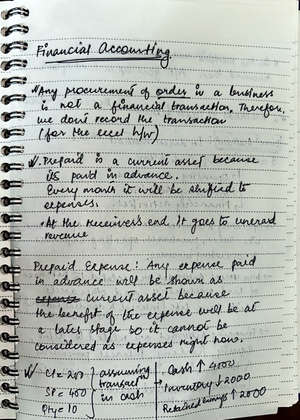 Financial Accounting
Any procurement of order in a business
is not a financial transaction, Therefore,
we dont record the transaction
(for the excel h/w)
Prepaid is a current asset because
its paid in advance.
Every month it will be shifted to
expenses.
• At the receivers end it goes to unerand
revenue
Prepaid Expense: Any expense paid
in advance will be shown as
current asset because
the benefit of the expense will be at
a later stage so it cannot be
considered as expenses right now.
CP = 200 } assuming Cash ↑ 4000
SP = 400 transactn Inventory ↓ 2000
Qty = 10 in cash Retained earnings ↑ 2000